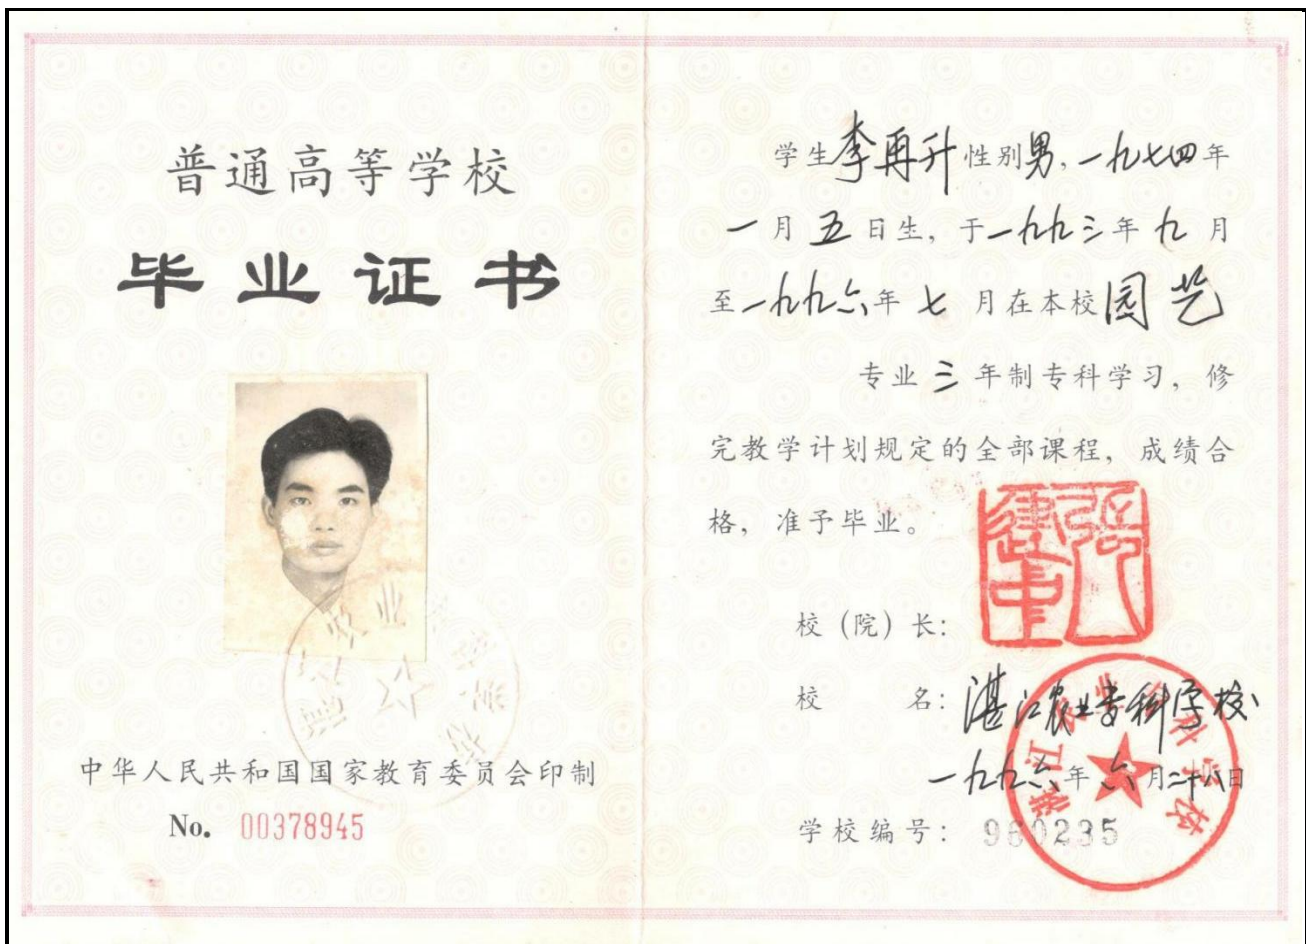 普通高等学校
毕业证书
中华人民共和国国家教育委员会印制
No. 00378945
学生李再升性别男，一九七四年
一月五日生，于一九九三年九月
至一九九六年七月在本校园艺
专业三年制专科学习，修
完教学计划规定的全部课程，成绩合
格，准予毕业。
校（院）长：
校 名：湛江农业专科学校
一九九六年六月二十八日
学校编号：960235
湛江农业专科学校